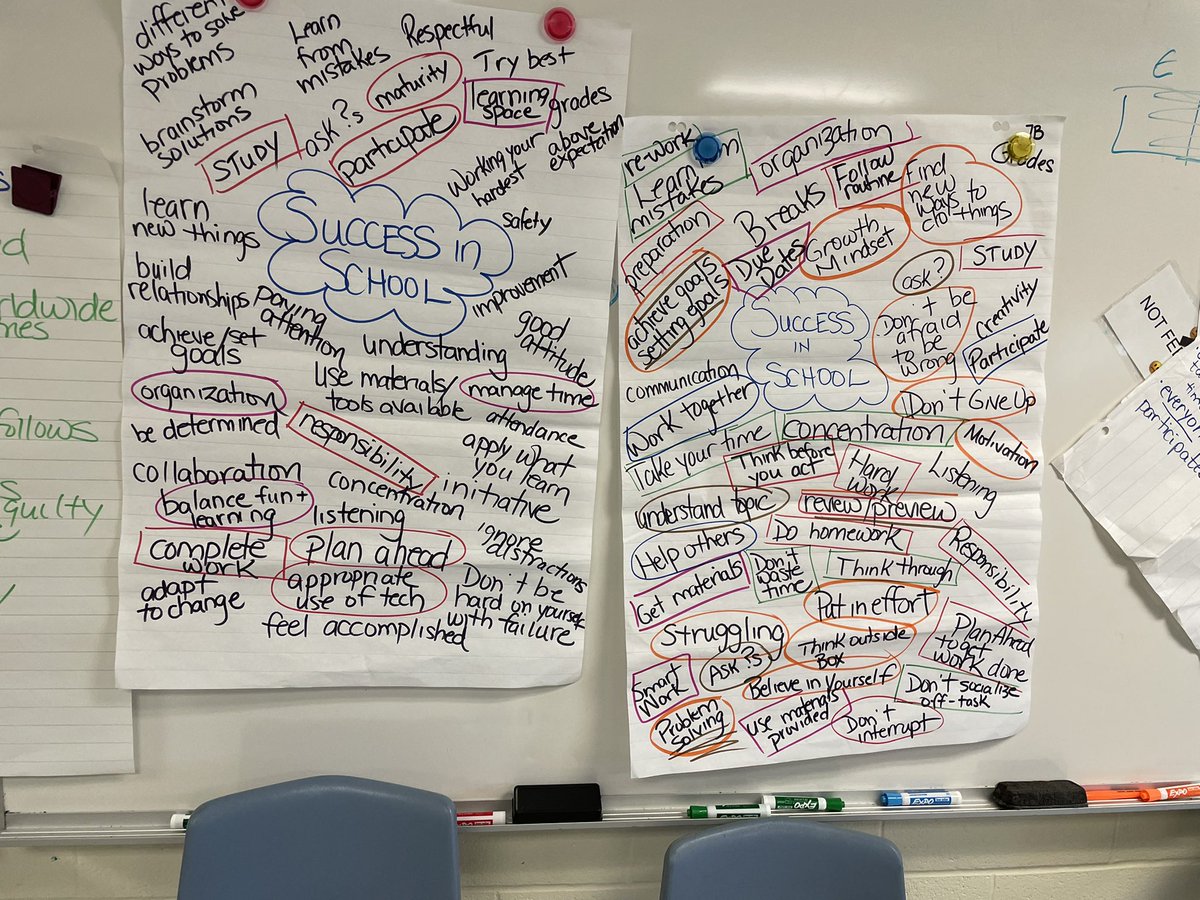 different
ways to solve
problems
Learn
from
mistakes
Respectful
Try best
maturity
learning
space
grades
above
expectation
brainstorm
solutions
STUDY
ask ?s
participate
Working your
hardest
safety
learn
new things
SUCCESS in
SCHOOL
improvement
build
relationships
paying
attention
good
attitude
achieve/set
goals
understanding
organization
use materials/
tools available
manage time
attendance
be determined
responsibility
apply what
you learn
collaboration
concentration
initiative
balance fun +
learning
listening
ignore
distractions
complete
work
Plan ahead
adapt
to change
appropriate
use of tech
Don't be
hard on yourself
with failure
feel accomplished
7B
re-work
Learn
mistakes
organization
Grades
Follow
routine
Find
new
ways to
do things
preparation
Breaks
Due
Dates
Growth
Mindset
ask?
STUDY
achieve goals
setting goals
SUCCESS
IN
SCHOOL
Don't be
afraid
to be
wrong
Creativity
Participate
communication
Work together
Don't Give Up
Take your time
concentration
Motivation
Think before
you act
Hard
work
Listening
understand topic
review/preview
Help others
Do homework
Responsibility
Get materials
Don't
waste
time
Think through
Put in effort
Struggling
Ask ?s
Think outside
Box
Plan Ahead
to get
work done
Smart
Work
Believe in Yourself
Don't socialize
off-task
Problem
solving
use materials
provided
Don't
interrupt
follows
NOT FE
everyo
participa
E
EXPO
EXPO
EXPO
EXPO